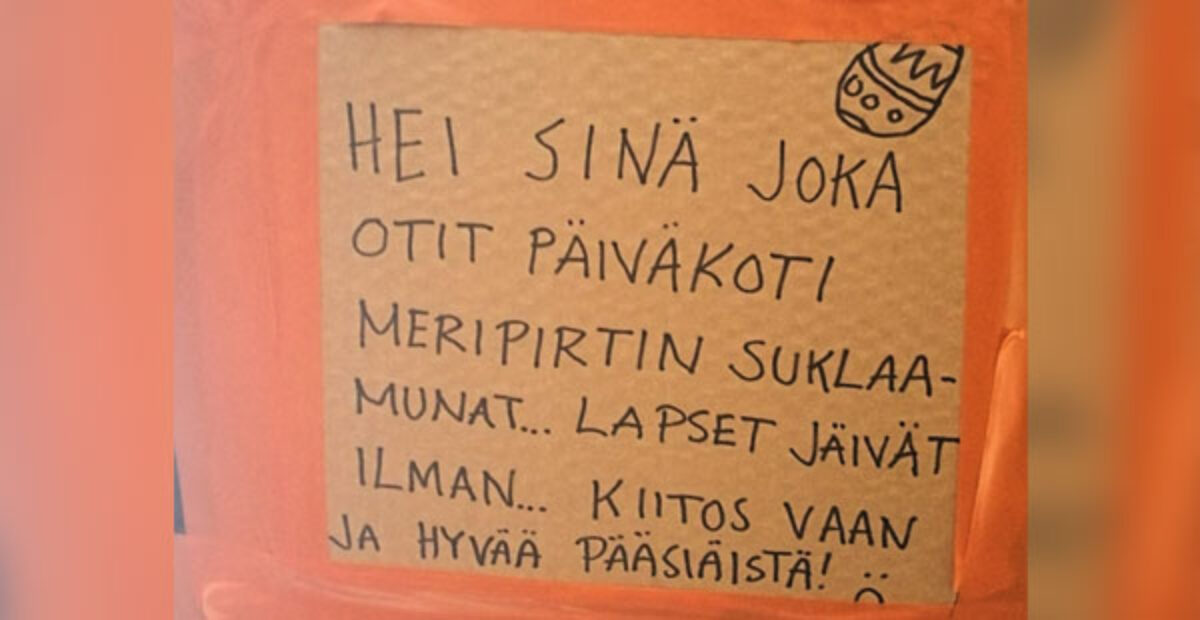 HEI SINÄ JOKA
OTIT PÄIVÄKOTI
MERIPIRTIN SUKLAA-
MUNAT... LAPSET JÄIVÄT
ILMAN... KIITOS VAAN
JA HYVÄÄ PÄÄSIÄISTÄ! :(